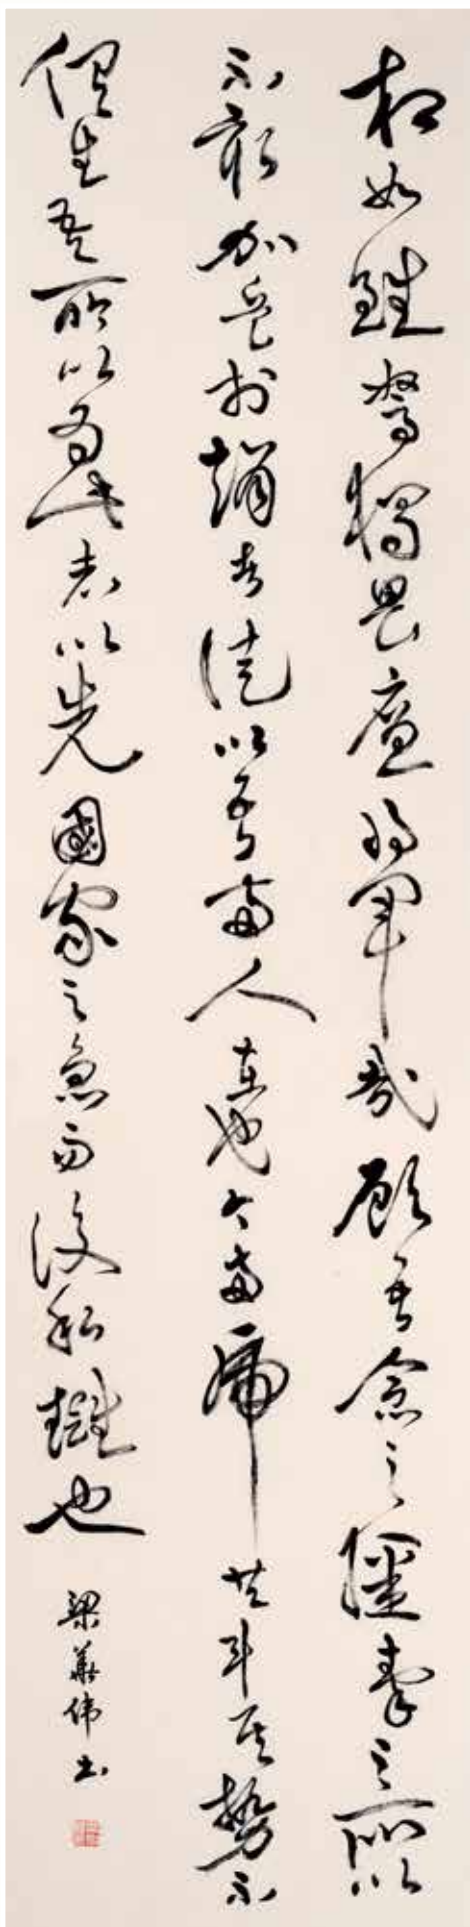 相如雖駑獨畏廉將軍哉顧吾念之彊秦之所以
不敢加兵於趙者徒以吾兩人在也今兩虎共斗其勢不
俱生吾所以為此者以先國家之急而後私讎也
梁華伟书